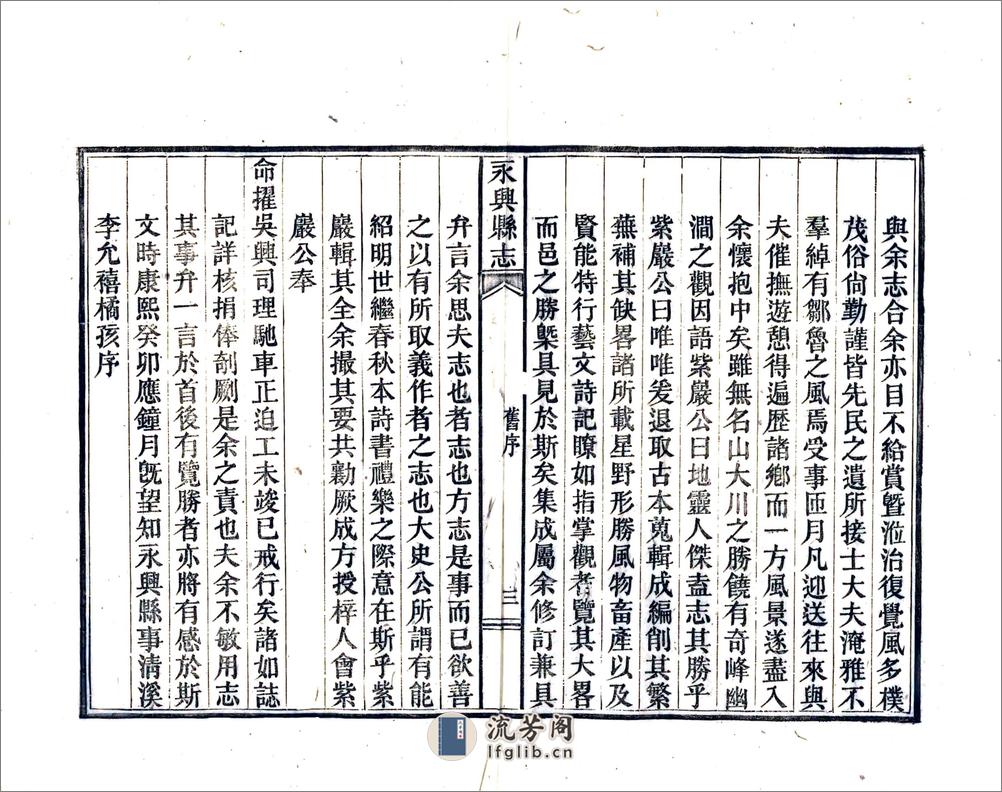 與余志合余亦目不給賞暨涖治復覺風多樸
茂俗尙勤謹皆先民之遺所接士大夫淹雅不
羣綽有鄒魯之風焉受事匝月凡迎送往來與
夫催撫遊憩得遍歷諸鄕而一方風景遂盡入
余懷抱中矣雖無名山大川之勝饒有奇峰幽
澗之觀因語紫巖公曰地靈人傑盍志其勝乎
紫巖公曰唯唯爰退取古本蒐輯成編削其繁
蕪補其缺畧諸所載星野形勝風物畜產以及
賢能特行藝文詩記瞭如指掌觀者覽其大畧
而邑之勝槩具見於斯矣集成屬余修訂兼具
永興縣志
舊序
三
弁言余思夫志也者志也方志是事而已欲善
之以有所取義作者之志也大史公所謂有能
紹明世繼春秋本詩書禮樂之際意在斯乎紫
巖輯其全余撮其要共勷厥成方授梓人會紫
巖公奉
命擢吳興司理馳車正迫工未竣已戒行矣諸如誌
記詳核捐俸剞劂是余之責也夫余不敏用志
其事弁一言於首後有覽勝者亦將有感於斯
文時康熙癸卯應鐘月旣望知永興縣事清溪
李允禧橘孩序
流芳阁
lfglib.cn